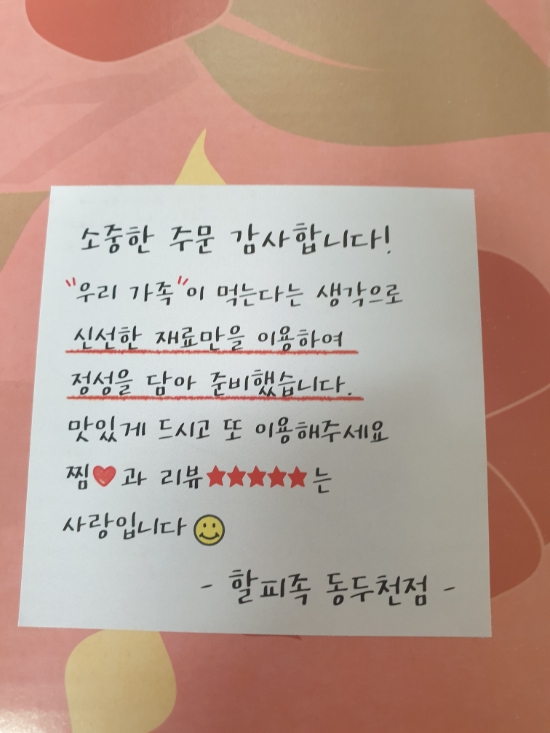 소중한 주문 감사합니다!
"우리 가족"이 먹는다는 생각으로
신선한 재료만을 이용하여
정성을 담아 준비했습니다.
맛있게 드시고 또 이용해주세요
찜♥과 리뷰★★★★★는
사랑입니다
- 할피족 동두천점 -